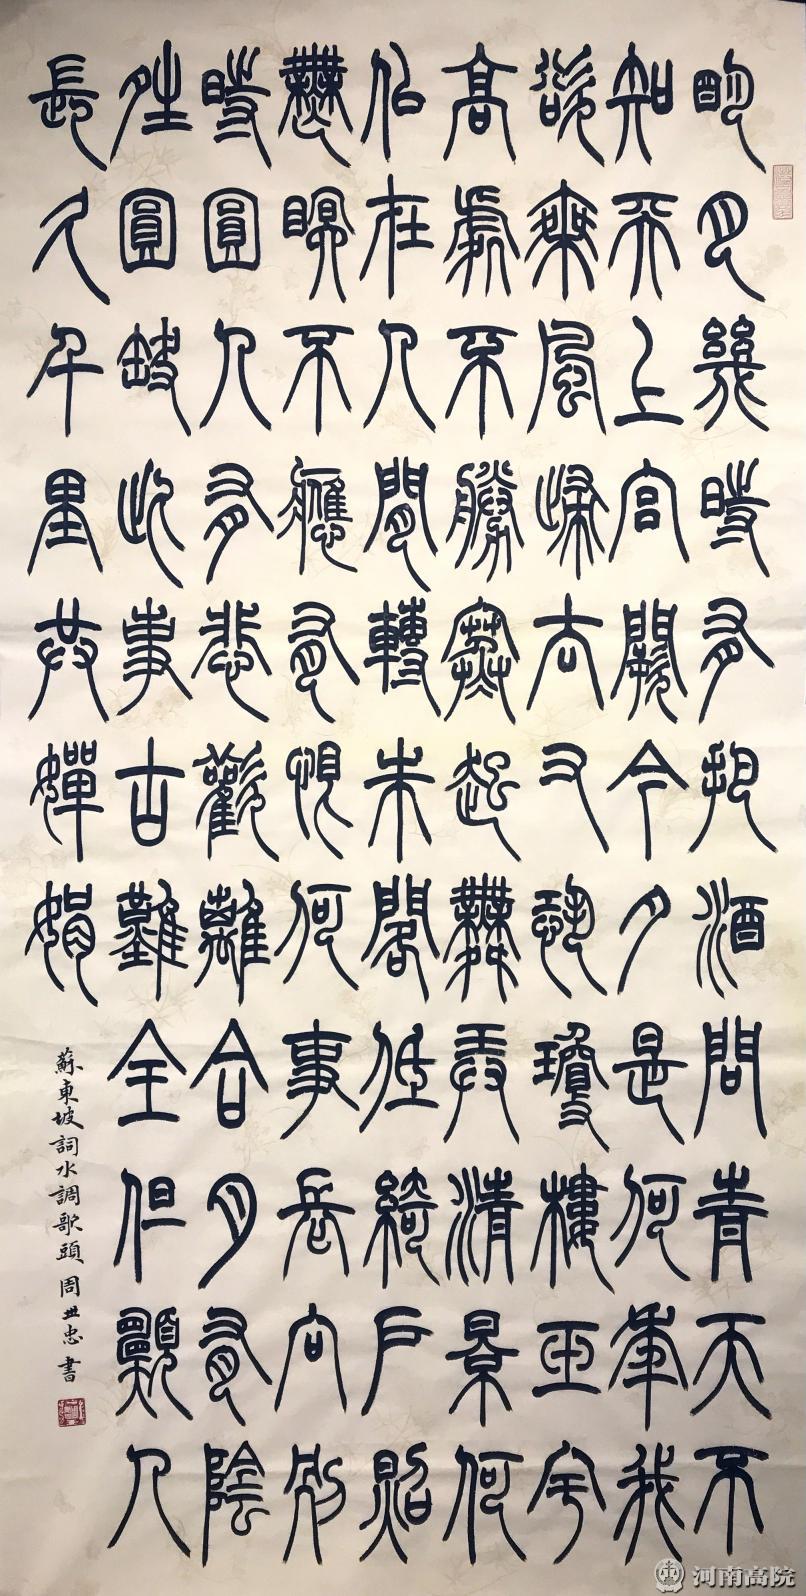 明月幾時有把酒問青天不
知天上宮闕今夕是何年我
欲乘風歸去又恐瓊樓玉宇
高處不勝寒起舞弄清景何
似在人間轉朱閣低綺戶照
無眠不應有恨何事長向別
時圓人有悲歡離合月有陰
晴圓缺此事古難全但願人
長久千里共嬋娟
蘇東坡詞水調歌頭 周世忠書
河南高院